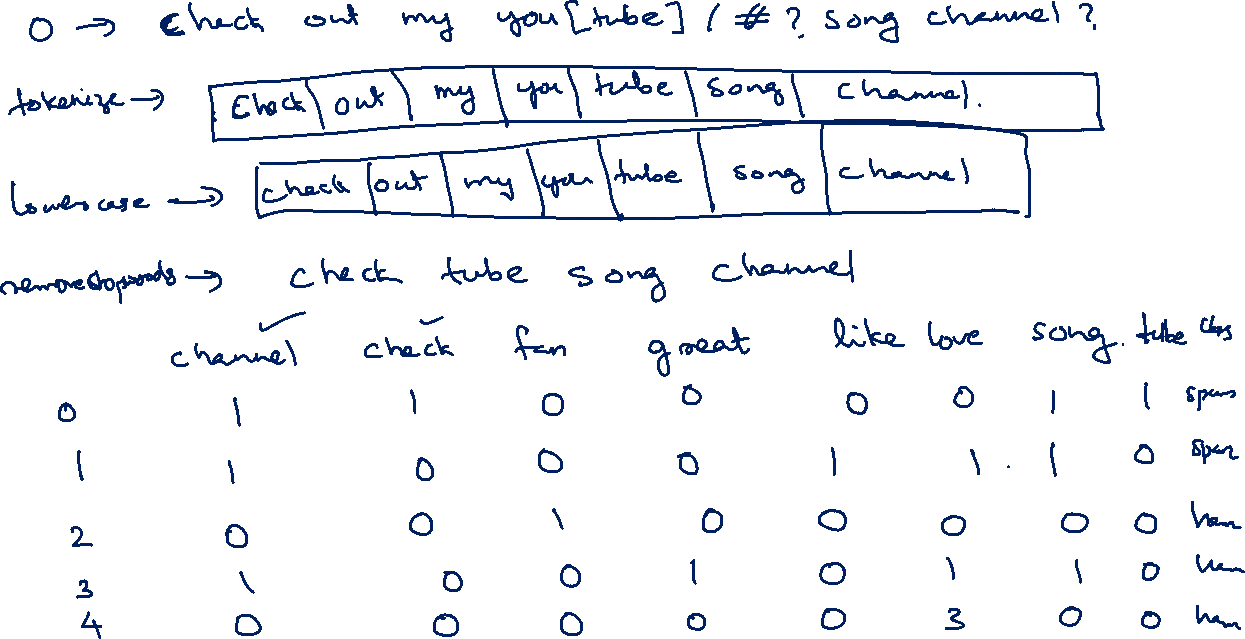 0 → Check out my you[tube] / # ? song channel ?
tokenize → Check out my you tube song channel.
lowercase → check out my you tube song channel
remove stopwords → check tube song channel
channel ✓ check ✓ fan great like love song. tube class
0 1 1 0 0 0 0 1 1 spam
1 1 0 0 0 1 1 . 1 0 spam
2 0 0 1 0 0 0 0 0 ham
3 1 0 0 1 0 1 1 0 ham
4 0 0 0 0 0 3 0 0 ham